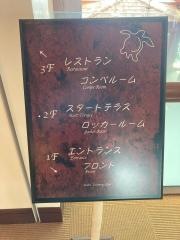 3F レストラン
Restaurant
コンペルーム
Compe Room
2F スタートテラス
Start Terrace
ロッカールーム
Locker Room
1F エントランス
Entrance
フロント
Front